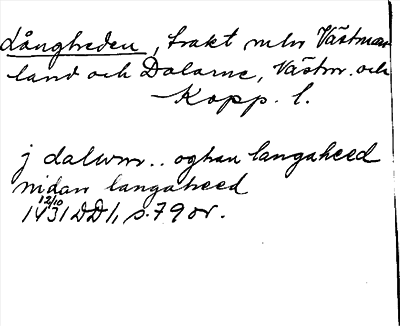 Långheden, trakt mln Västman-
land och Dalarne, Västm. och
Kopp. l.
j dalwm.. oghan langaheed
nidan langaheed
12/10
1431 DD 1, s. 79 or.